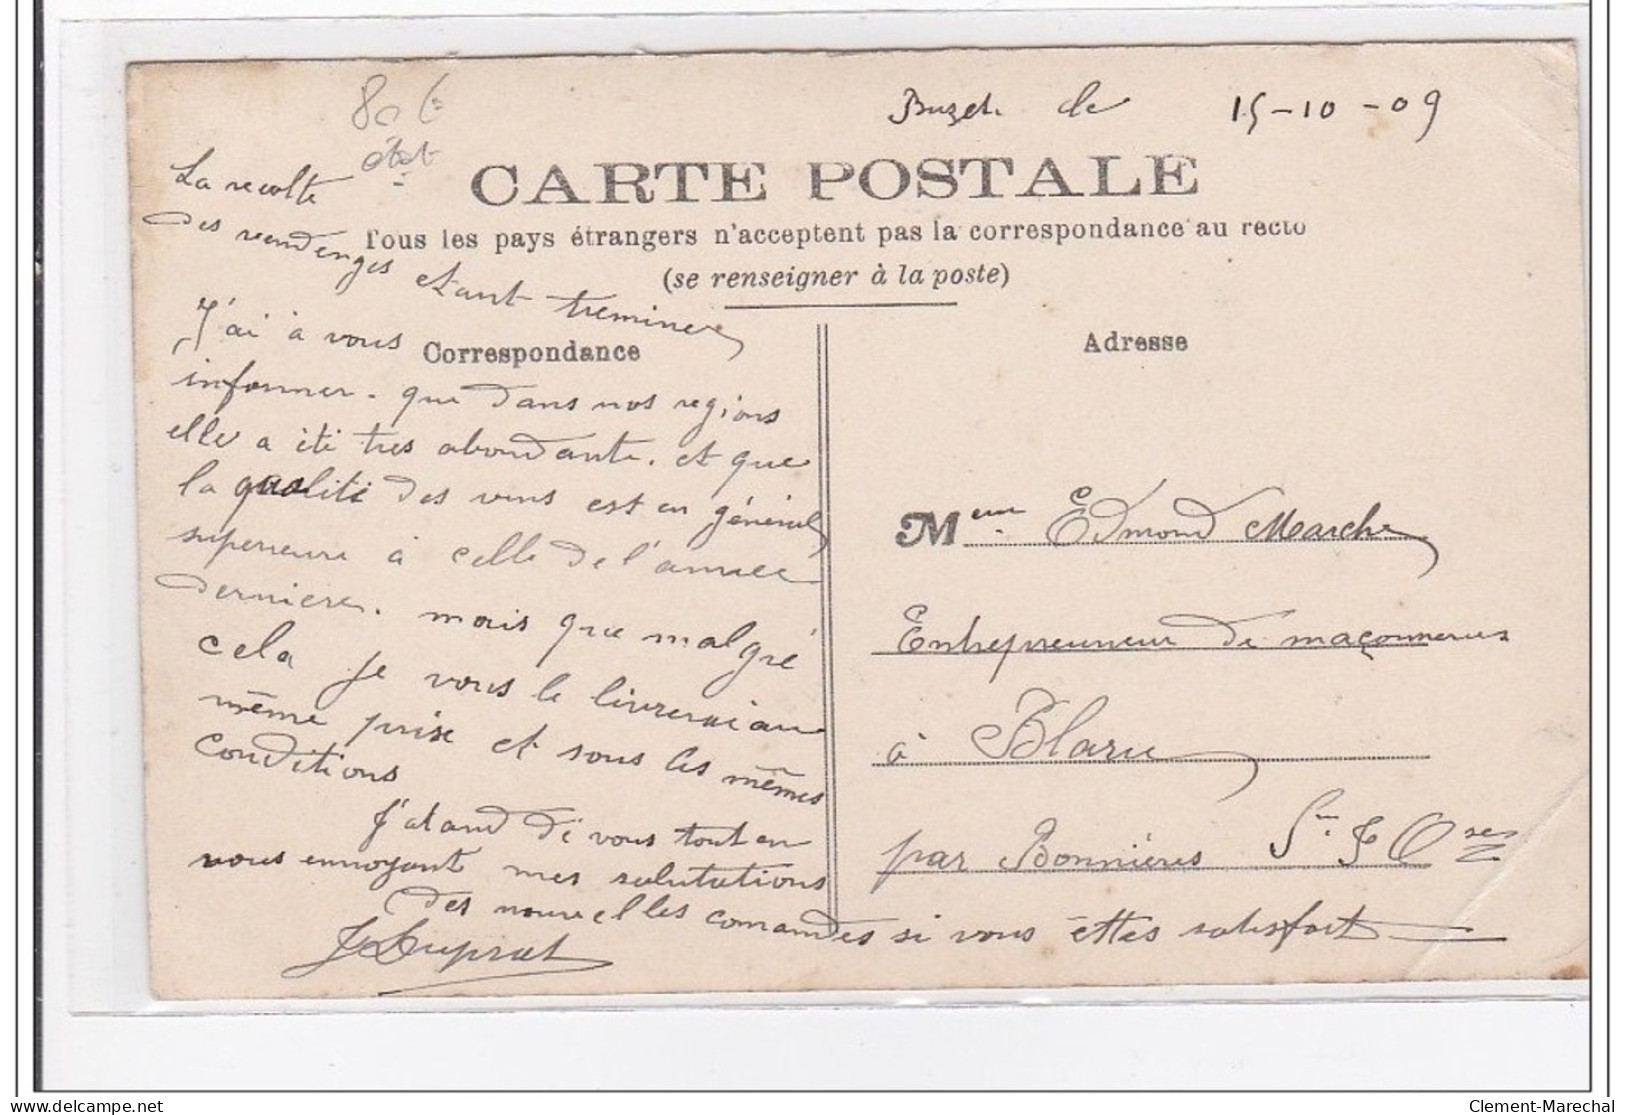 Buzet le 15-10-09
80 €
état
CARTE POSTALE
Tous les pays étrangers n'acceptent pas la correspondance au recto
(se renseigner à la poste)
Correspondance
La recolte
des vendenges etant treminer
J'ai à vous
informer. que dans nos regions
elle a été tres abondante. et que
la qualité des vins est en général
superieure à celle de l'année
derniere. mais que malgré
cela je vous le livrerai au
même prix et sous les mêmes
conditions
J'atand de vous tout en
vous envoyant mes salutations
des nouvelles comandes si vous êttes satisfait
J Duprat
Adresse
Meur Edmond Marche
Entrepreuneur de maçonneries
à Blaru
par Bonnières S. & Oise
Clement-Marechal